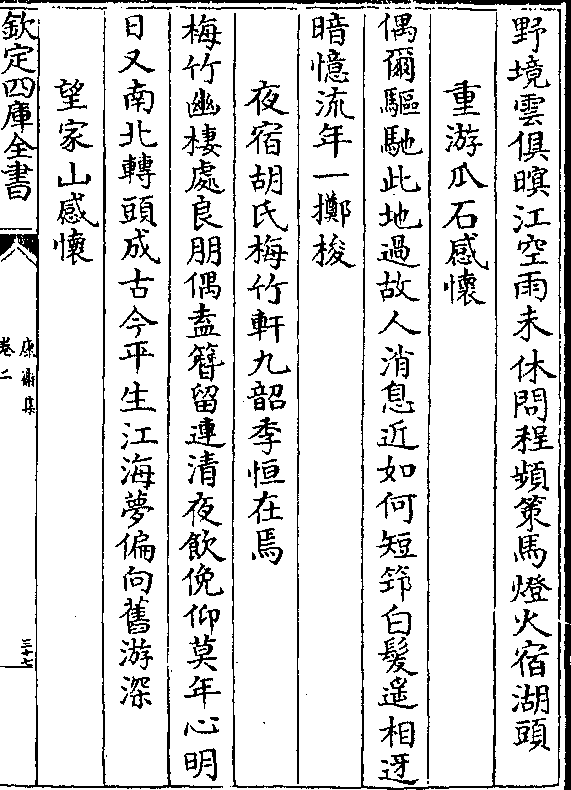 野境雲俱暝江空雨未休問程頻策馬燈火宿湖頭
重游瓜石感懷
偶爾驅馳此地過故人消息近如何短筇白髮遙相迓
暗憶流年一擲梭
夜宿胡氏梅竹軒九韶季恒在焉
梅竹幽棲處良朋偶盍簪留連清夜飲俛仰莫年心明
日又南北轉頭成古今平生江海夢偏向舊游深
望家山感懷
欽定四庫全書
康齋集
卷二
三十七